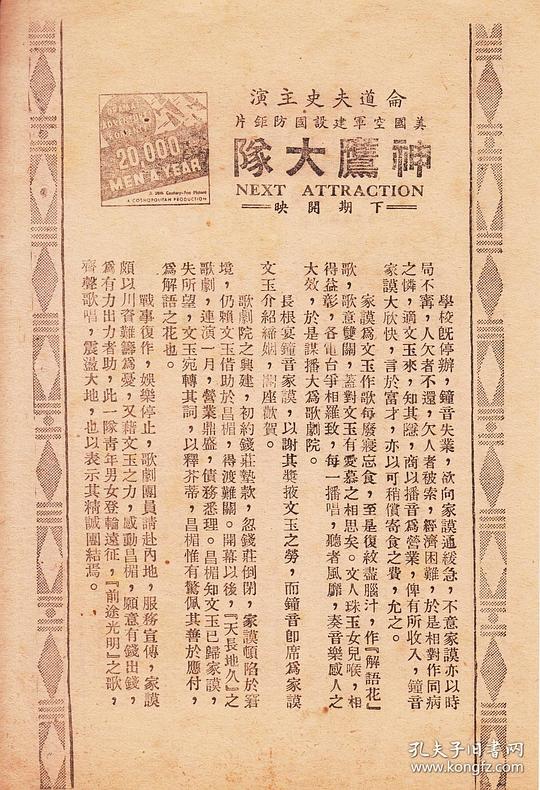 侖道夫史主演
美國空軍建設國防鉅片
神鷹大隊
NEXT ATTRACTION
下期開映
20,000
MEN A YEAR
A 20th Century-Fox Picture
A COSMOPOLITAN PRODUCTION
學校既停辦，鐘音失業，欲向家謨通緩急，不意家謨亦以時
局不甯，人欠者不還，欠人者被索，經濟困難，於是相對作同病
之憐，適文玉來，知其隱，商以播音爲營業，俾有所收入，鐘音
家謨大欣快，言於富才，亦以可稍償寄食之費，允之。
家謨爲文玉作歌每廢寢忘食，至是復絞盡腦汁，作『解語花』
歌，歌意雙關，蓋對文玉有愛慕之相思矣。文人珠玉女兒喉，相
得益彰，各電台爭相羅致，每一播唱，聽者風靡，奏音樂感人之
大效，於是謀播大爲歌劇院。
長根宴鐘音家謨，以謝其獎掖文玉之勞，而鐘音卽席爲家謨
文玉介紹締姻，闔座歡賀。
歌劇院之興建，初約錢莊墊款，忽錢莊倒閉，家謨頓陷於窘
境，仍賴文玉借助於昌楣，得渡難關。開幕以後，『天長地久』之
歌劇，連演一月，營業鼎盛，債務悉理。昌楣知文玉已歸家謨，
失所望，文玉宛轉其詞，以釋芥蒂，昌楣惟有驚佩其善於應付，
爲解語之花也。
戰事復作，娛樂停止，歌劇團員請赴內地，服務宣傳，家謨
頗以川資難籌爲憂，又藉文玉之力，感動昌楣，願意有錢出錢，
爲有力出力者助，此一隊靑年男女登輪遠征，『前途光明』之歌，
齊聲歌唱，震溢大地，也以表示其精誠團結焉。
孔夫子旧书网
www.kongfz.com